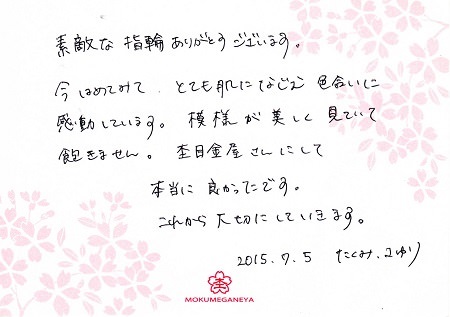 素敵な指輪ありがとうございます。
今はめてみて、とても肌になじむ色合いに
感動しています。模様が美しく見ていて
飽きません。杢目金屋さんにして
本当に良かったです。
これから大切にしていきます。
2015.7.5 たくみ.みゆり
杢
MOKUMEGANEYA